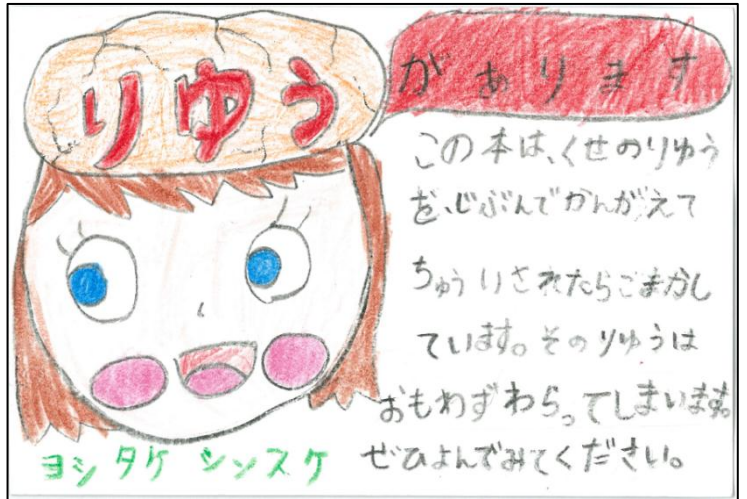 りゆう
があります
この本は、くせのりゆう
を、じぶんでかんがえて
ちゅういされたらごまかし
ています。そのりゆうは
おもわずわらってしまいます。
ぜひよんでみてください。
ヨシタケ シンスケ